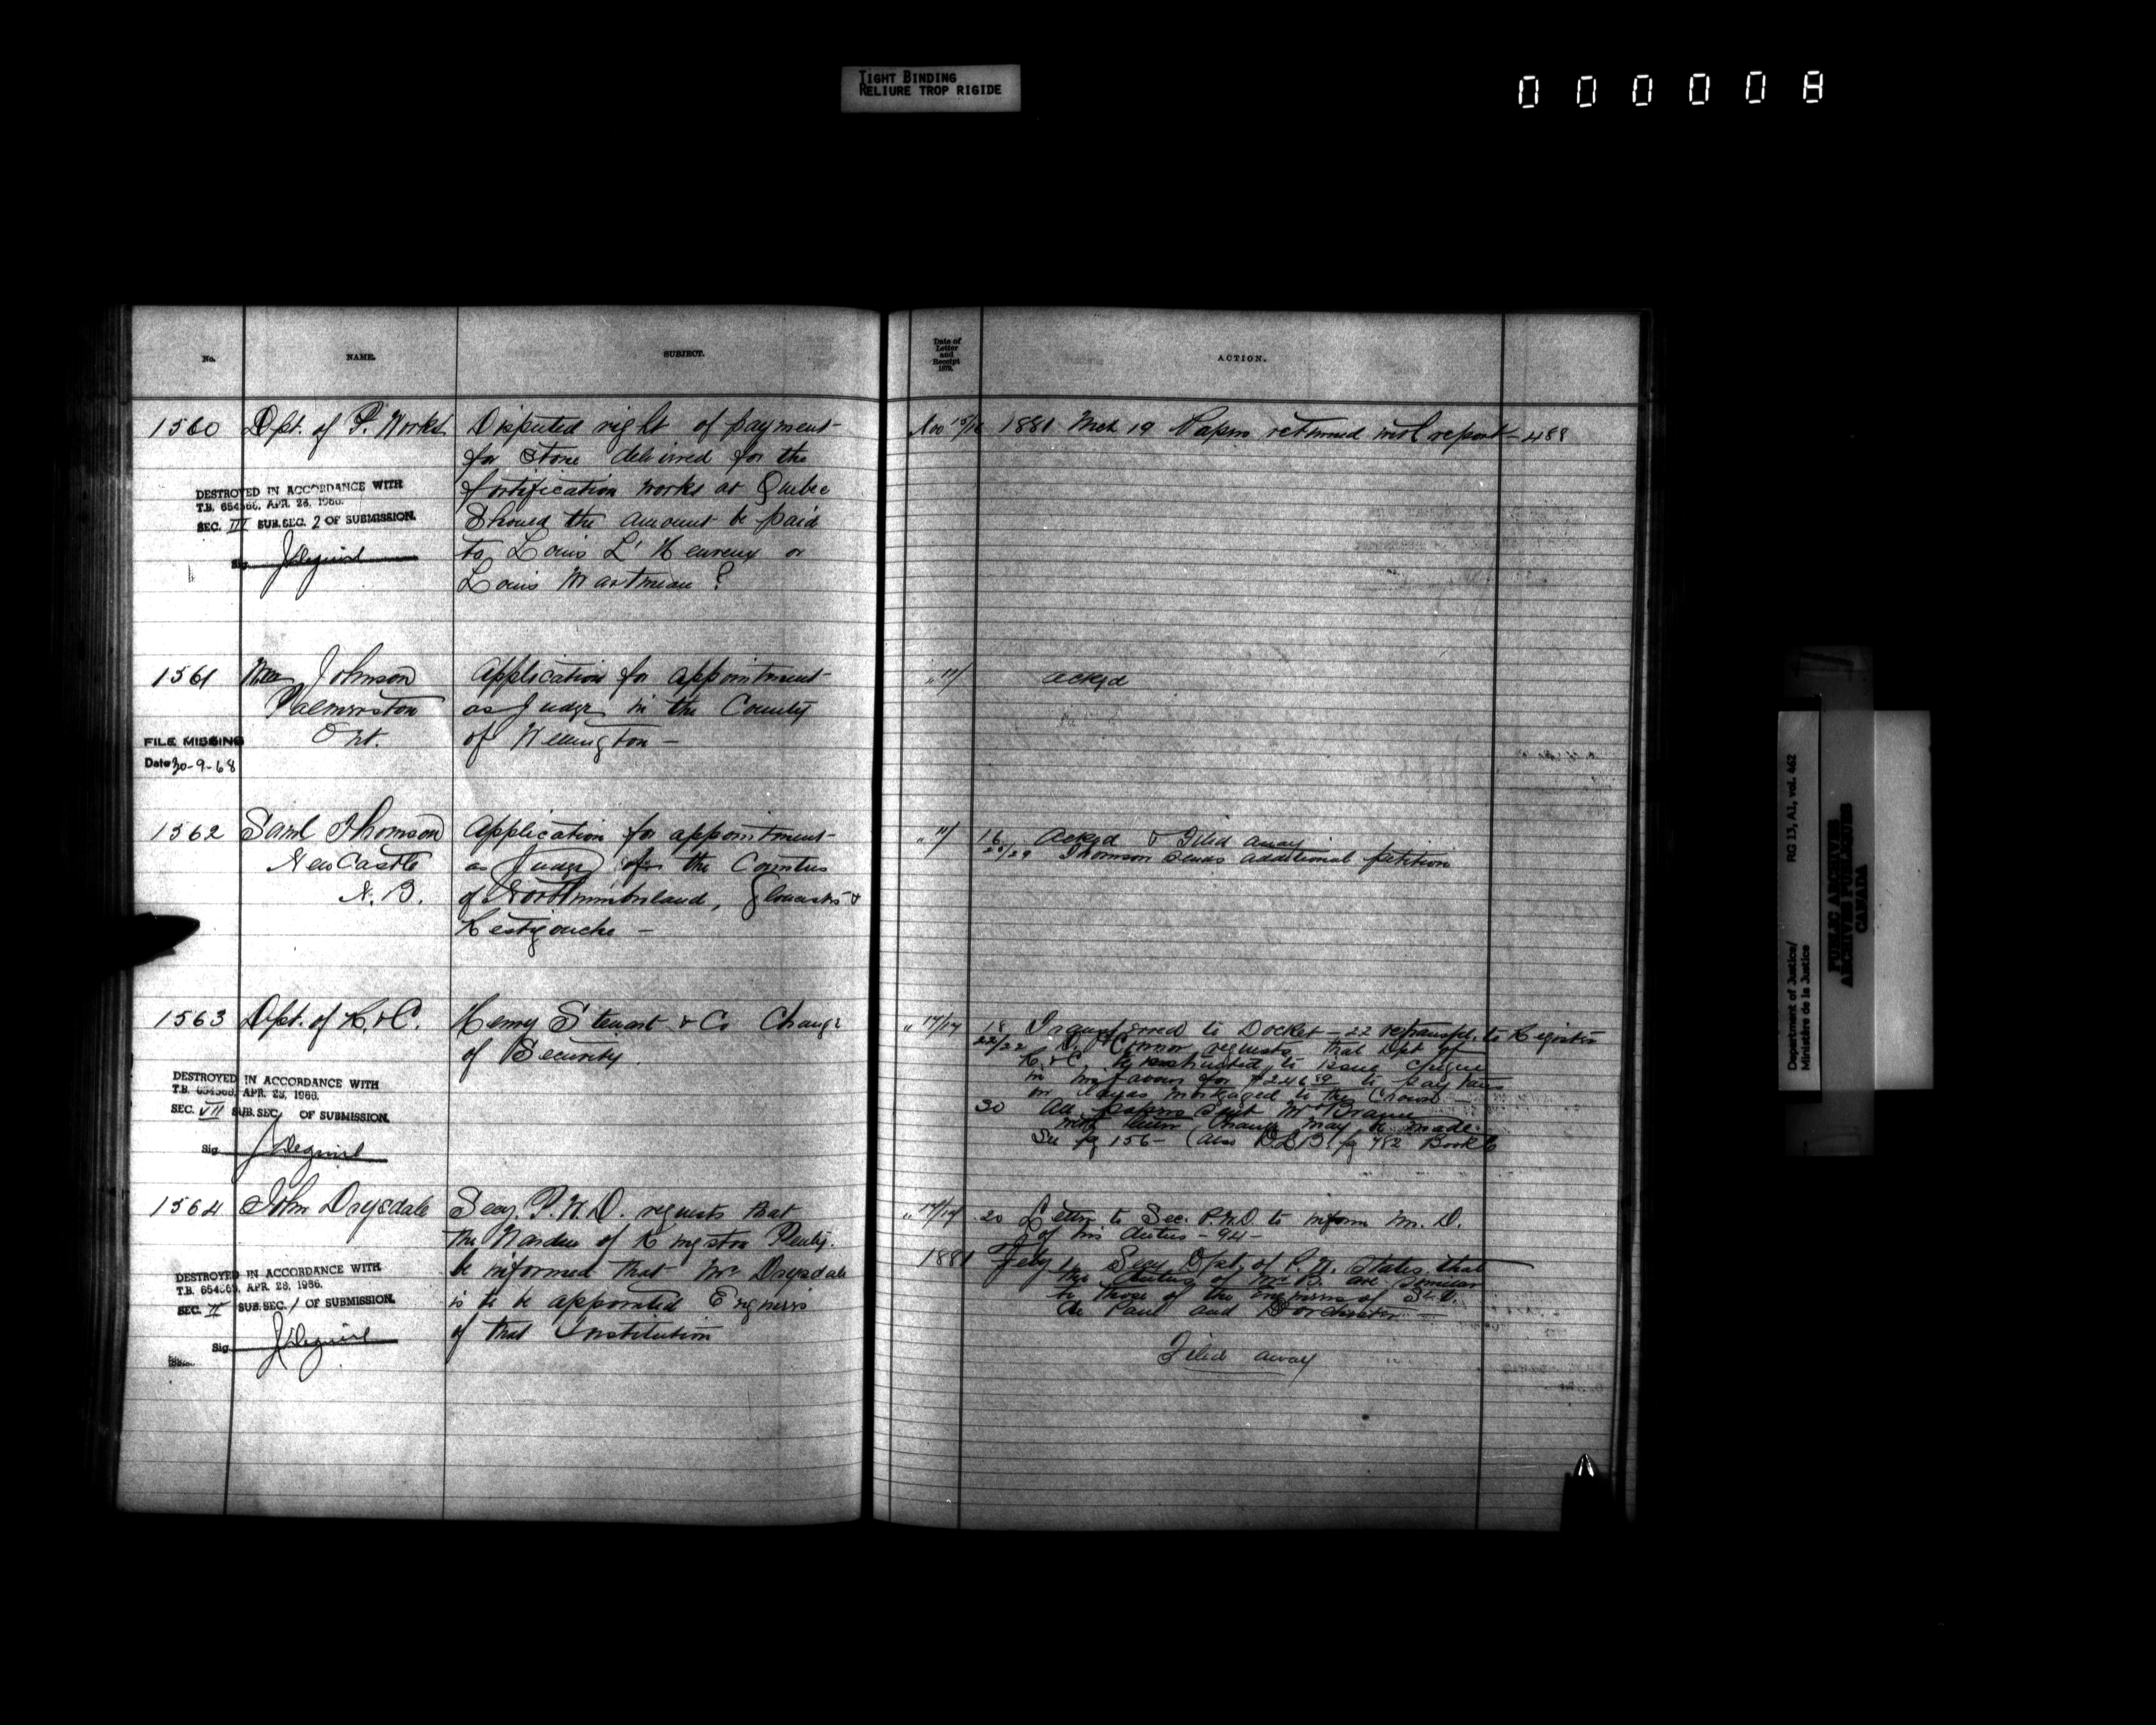 TIGHT BINDING
RELIURE TROP RIGIDE
000008
No. NAME. SUBJECT.
Date of Letter and Receipt 1879. ACTION.
1560 Dpt. of P. Works Disputed right of payment
for stone delivered for the
fortification works at Quebec
Should the amount be paid
to Louis L'Heureux or
Louis Martineau?
DESTROYED IN ACCORDANCE WITH
T.B. 654366, APR. 28, 1966.
SEC. III SUB. SEC. 2 OF SUBMISSION.
Sig.
Nov 15/16 1881 Mch 19 Papers returned with report - 488
1561 Wm Johnson Application for appointment
Palmerston as Judge in the County
Ont. of Wellington -
FILE MISSING
Date 30-9-68
" " ackgd
1562 Saml Thomson Application for appointment
New Castle as Judge for the Counties
N.B. of Northumberland, Gloucester &
Restigouche -
" " 16 Ackgd & Filed away
28/29 Thomson sends additional petition
1563 Dpt. of R. & C. Henry Stewart & Co Change
of Security
DESTROYED IN ACCORDANCE WITH
T.B. 654366, APR. 28, 1966.
SEC. VII SUB. SEC. OF SUBMISSION.
Sig.
" 17/17 18 Transferred to Docket - 22 retransfd. to Register
22/22 O'Connor requests that Dpt of
R. & C. be instructed to issue cheque
in his favour for $246 to pay taxes
on mortgaged to the Crown -
30 All papers sent Mr
with letter change may be made.
See pg 156 - (also D.L.B. pg 782 Book 6
1564 John Drysdale Secy P.W.D. requests that
the Warden of Kingston Penity.
be informed that Mr Drysdale
is to be appointed Engineer
of that Institution
DESTROYED IN ACCORDANCE WITH
T.B. 654366, APR. 28, 1966.
SEC. II SUB. SEC. 1 OF SUBMISSION.
Sig.
" 17/17 20 Letter to Sec. P.W.D. to inform Mr. D.
of his duties - 94 -
1881 Feby 1 Secy Dpt. of P.W. states that
the duties of Mr D. are similar
to those of the engineers of St. V.
de Paul and Dorchester -
Filed away
Department of Justice/
Ministère de la Justice
RG 13, A1, vol. 462
PUBLIC ARCHIVES
ARCHIVES PUBLIQUES
CANADA